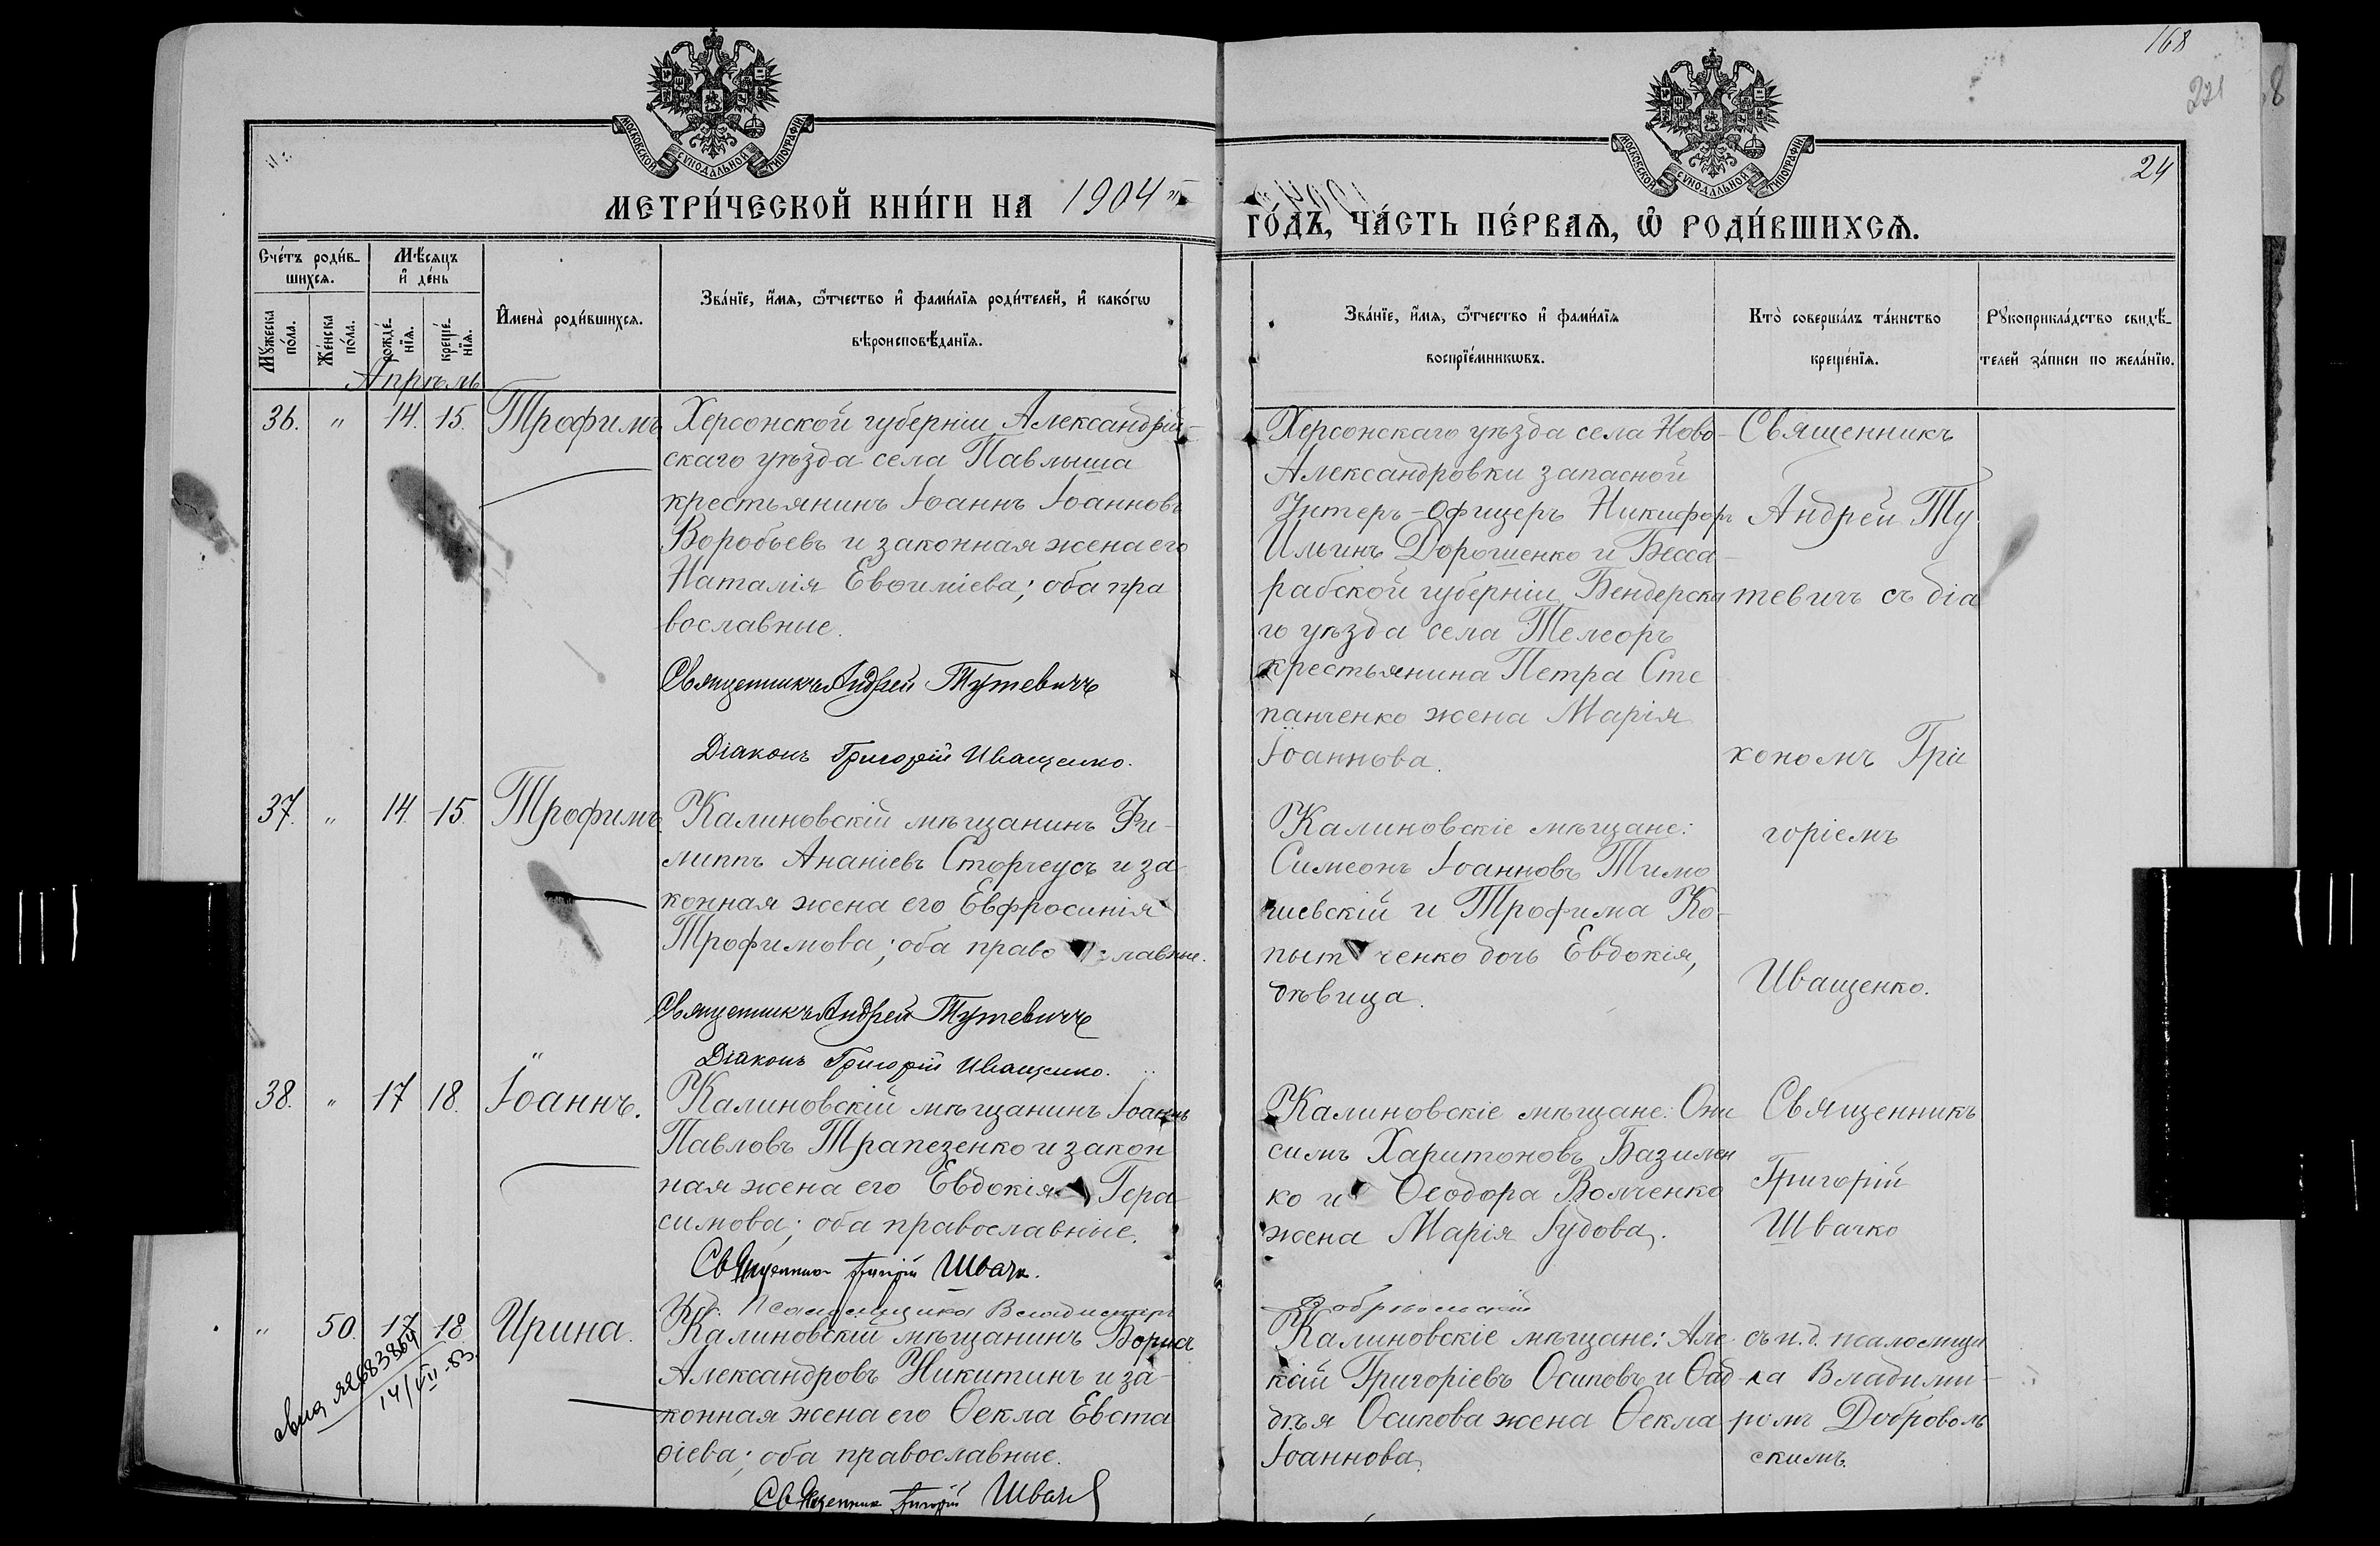 168
221
8
24
МОСКОВСКОЙ СѴНОДАЛЬНОЙ ТИПОГРАФІИ
МОСКОВСКОЙ СѴНОДАЛЬНОЙ ТИПОГРАФІИ
МЕТРИ́ЧЕСКОЙ КНИ́ГИ НА 1904
ГО́ДЪ, ЧА́СТЬ ПЕ́РВАѦ, Ѡ҆ РОДИ́ВШИХСѦ.
Сче́тъ роди́в-
шихсѧ.
Мѣ́сѧцъ
и҆ де́нь
Мꙋ́жеска по́ла.
Же́нска по́ла.
рожде́-
нїѧ.
креще́-
нїѧ.
И҆мена̀ роди́вшихсѧ.
Зва́нїе, и҆́мѧ, ѻ҆́тчество и҆ фами́лїѧ роди́телей, и҆ како́гѡ
вѣроисповѣ́данїѧ.
Зва́нїе, и҆́мѧ, ѻ҆́тчество и҆ фами́лїѧ
воспрїе́мникѡвъ.
Кто̀ соверша́лъ та́инство
креще́нїѧ.
Рꙋкоприкла́дство свидѣ́-
телей за́писи по жела́нїю.
Апрѣль
36. " 14. 15. Трофимъ
Херсонской губерніи Александрій-
скаго уѣзда села Павлыша
крестьянинъ Іоаннъ Іоанновъ
Воробьевъ и законная жена его
Наталія Евѳиміева; оба пра
вославные.
Священникъ Андрей Тутевичъ
Діаконъ Григорій Иващенко.
Херсонскаго уѣзда села Ново-
Александровки запасной
Унтеръ-Офицеръ Никифоръ
Ильинъ Дорошенко и Бесса-
рабской губерніи Бендерска
го уѣзда села
крестьянина Петра Сте
панченко жена Марія
Іоаннова.
Священникъ
Андрей Ту
тевичъ съ діа
кономъ Гри
горіемъ
Иващенко.
37. " 14. 15. Трофимъ
Калиновскій мѣщанинъ Фи-
липпъ Ананіевъ Сторчеусъ и за
конная жена его Евфросинія
Трофимова; оба право славные.
Священникъ Андрей Тутевичъ
Діаконъ Григорій Иващенко.
Калиновскіе мѣщане:
Симеонъ Іоанновъ Тимо
шевскій и Трофима Ко-
пыт ченко дочь Евдокія,
дѣвица.
38. " 17 18. Іоаннъ.
Калиновскій мѣщанинъ Іоаннъ
Павловъ Трапезенко и закон
ная жена его Евдокія Гера
симова; оба православные.
Священникъ Григорій Швачко.
И.д. Псаломщика Владимиръ
Добровольскій
Калиновскіе мѣщане: Они
симъ Харитоновъ Базилен
ко и Ѳеодора Волченко
жена Марія Іудова.
Священникъ
Григорій
Швачко
" 50. 17 18. Ирина.
Калиновскій мѣщанинъ Борисъ
Александровъ Никитинъ и за-
конная жена его Ѳекла Евста
ѳіева; оба православные.
Священник Григорій Швачко
Калиновскіе мѣщане: Але
ксій Григоріевъ Осиповъ и Ѳад
дѣя Осипова жена Ѳекла
Іоаннова.
съ и.д. псаломщи
ка Владими-
ромъ Доброволь
скимъ.
14/VII-83.